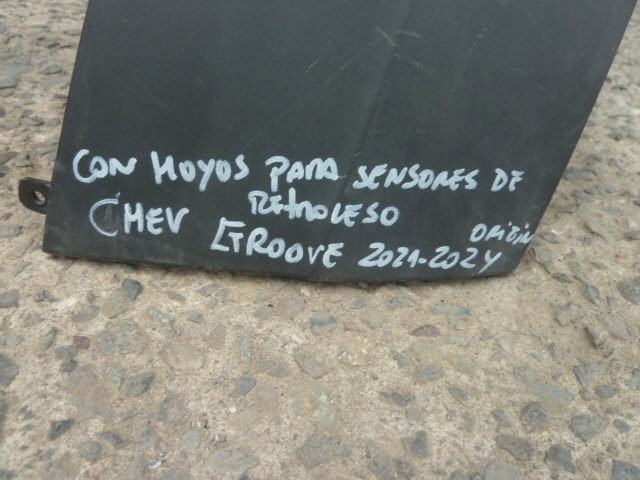 CON HOYOS PARA SENSORES DE
RETROCESO
CHEV GROOVE 2021-2024 ORIGIN